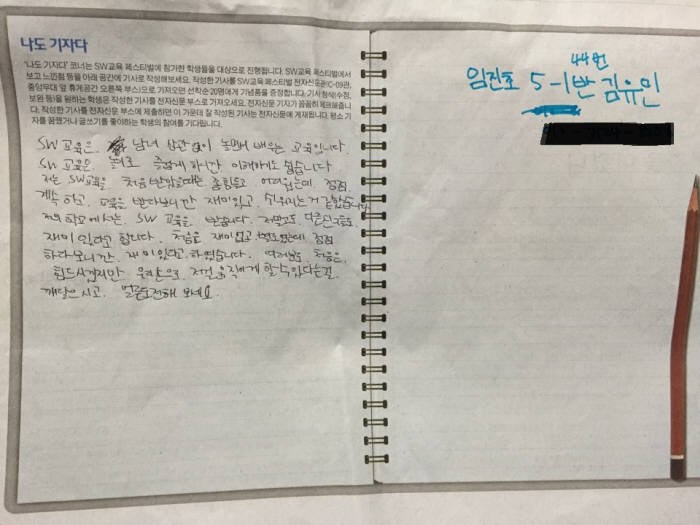 나도 기자다
'나도 기자다' 코너는 SW교육 페스티벌에 참가한 학생들을 대상으로 진행합니다. SW교육 페스티벌에서
보고 느낀점 등을 아래 공간에 기사로 작성해보세요. 작성한 기사를 SW교육 페스티벌 전자신문관(C-09관,
중앙무대 앞 휴게공간 오른쪽 부스)으로 가져오면 선착순 20명에게 기념품을 증정합니다. 기사 형식(수정,
보완 등)을 원하는 학생은 작성한 기사를 전자신문 부스로 가져오세요. 전자신문 기자가 꼼꼼히 체크해줍니
다. 작성한 기사를 전자신문 부스에 제출하면 이 가운데 잘 작성된 기사는 전자신문에 게재됩니다. 평소 기
자를 꿈꿨거나 글쓰기를 좋아하는 학생의 참여를 기다립니다.
SW 교육은. 남녀 상관 없이 놀면서 배우는 교육입니다.
SW 교육은. 놀이로 즐겁게 하니깐 이해하기도 쉽습니다
저는 SW교육을 처음 받았을때는 좀 힘들고 어려웠는데 점점
계속 하고. 교육을 받다보니깐 재미있고. 쉬워지는거 같았습니다.
저희 학교에서는. SW 교육을. 받습니다. 저말고도 다른친구들도
재미있다고 합니다. 처음은 재미없고 힘도없는데 점점
하다보니깐. 재미있다고 하였습니다. 여러분도 처음은.
힘드시겠지만 우리손으로. 저걸 움직이게 할수있다는걸
깨달으시고. 얼른도전해 보세요.
44번
임진초 5-1반 김유민